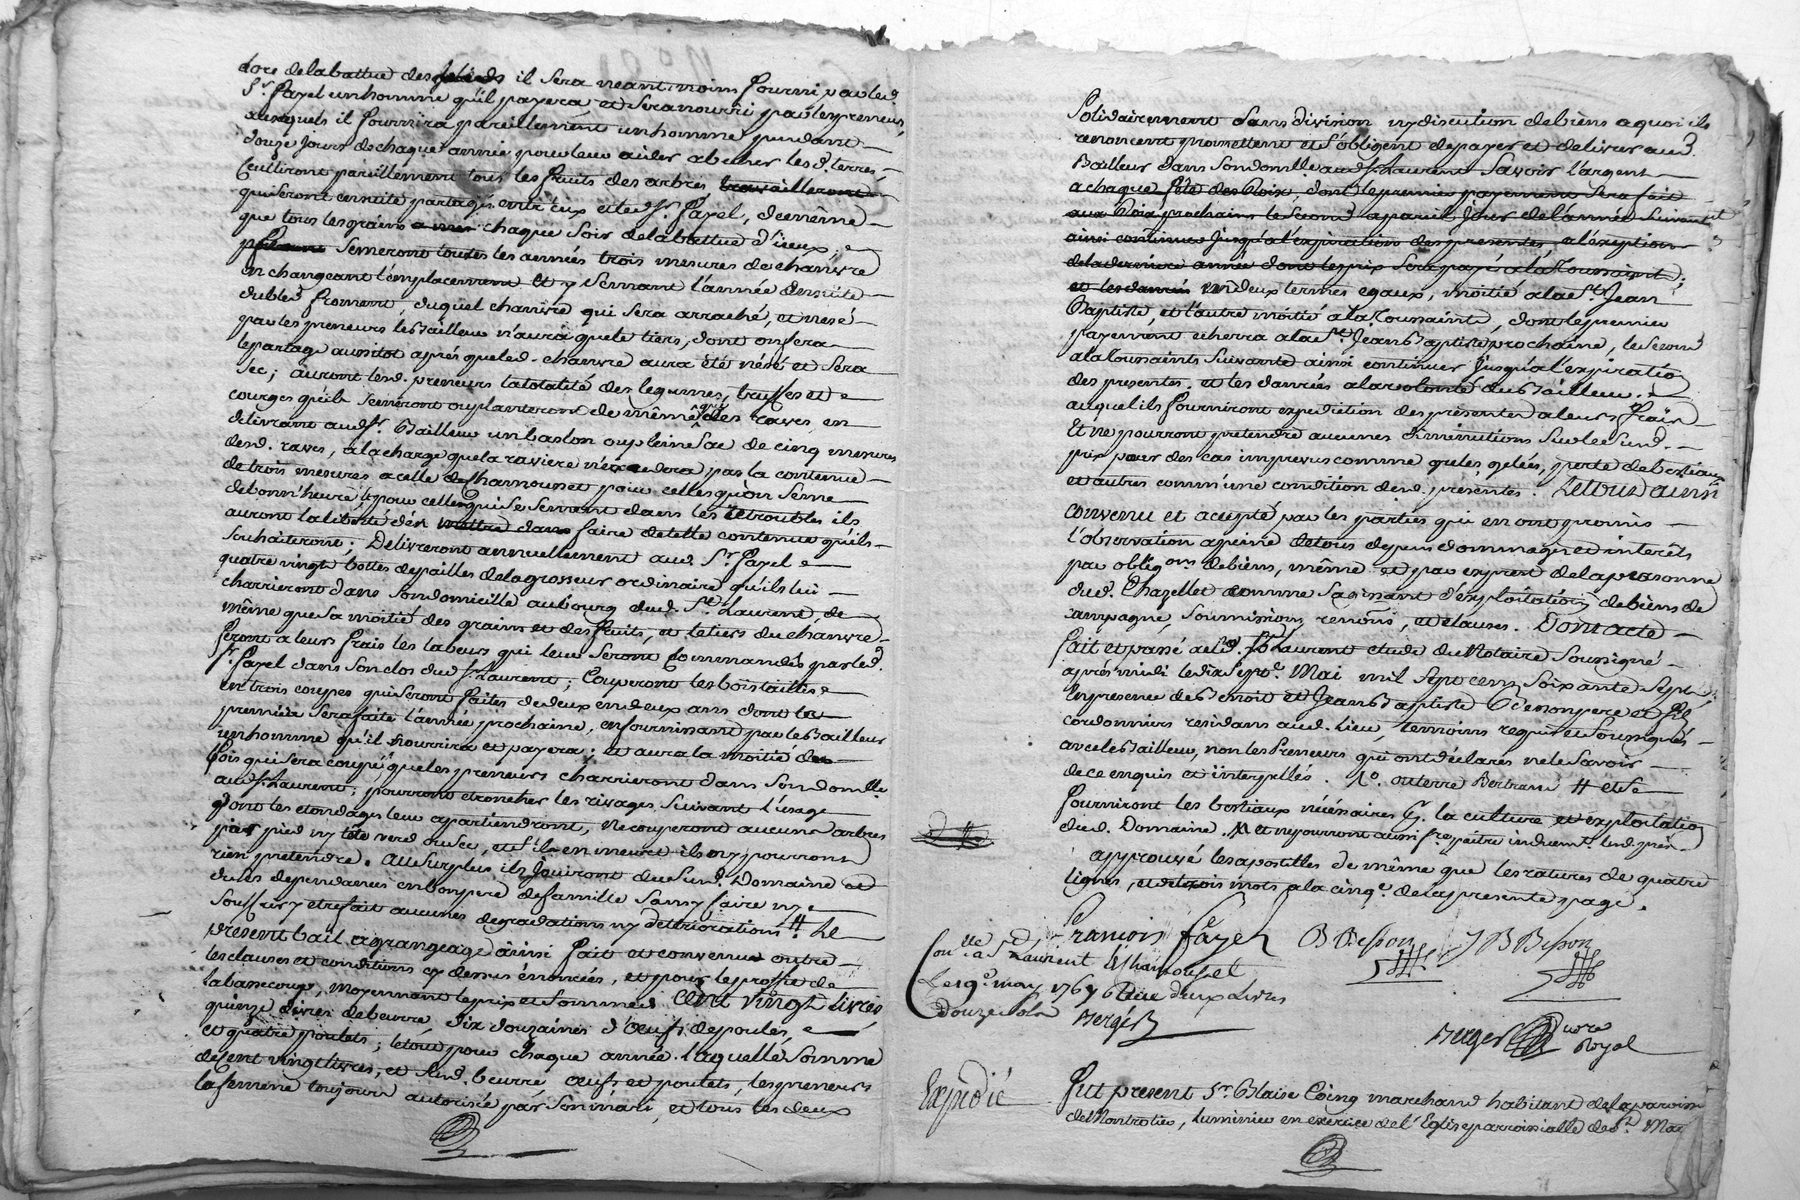 lors de la battue des il sera neantmoins fourni par led.
Sr. Fayel un homme qu'il payera et sera nourri par les preneurs,
auxquels il fournira pareillement un homme pendant
douze jours de chaque année pour leur aider a becher les d. terres
Ceuilliront pareillement tous les fruits des arbres travailleront
qui seront ensuite partagés entre eux et led. Sr. Fayel, de même
que tous les grains chaque soir de la battue d'iceux, e
Semeront toutes les années trois mesures de chanvre
en changeant l'emplacement et y semant l'année ensuite
du bled froment, duquel chanvre qui sera arraché, et nesé
par les preneurs le Bailleur n'aura que le tiers, dont on fera
le partage aussitot aprés que led. chanvre aura été nésé et sera
sec; auront lesd. preneurs la totalité des legumes, truffes et
courges qu'ils semeront ou planteront de même que des raves en
délivrant aud. Sr. Bailleur un baston ou pleine sac de cinq mesures
desd. raves, a la charge que la raviere n'excedera pas la contenue
de trois mesures a celle de Chamousset pour celles qu'on seme
de bonn'heure, et pour celles qui se sement dans les retroubles ils
auront la liberté d'en mettre dans faire de telle contenue qu'ils
souhaiteront; Delivreront annuellement aud. Sr. Fayel e
quatre vingt bottes de pailles de la grosseur ordinaire qu'ils lui
charrieront dans son domicille au bourg dud. St. Laurent, de
même que sa moitié des grains et des fruits, et le tiers du chanvre
feront a leurs frais les labeurs qui leur seront commandés par led.
Sr. Fayel dans son clos dud. St. Laurent; Couperont les bois taillis e
en trois coupes qui seront faites de deux en deux ans dont la
premiere sera faite l'année prochaine, en fournissant par le Bailleur
un homme qu'il nourrira et payera; et aura la moitié du
bois qui sera coupé que les preneurs charrieront dans son domlle.
aud. St. Laurent; pourront etroncher les rivages suivant l'usage
dont les etondages leur apartiendront, ne couperont aucuns arbres
par pied ny tête verd ou sec, et s'il en meurt ils n'y pourront
rien pretendre. Au surplus ils jouiront du susd. Domaine et
de ses dependances en bon pere de famille sans y faire ny e
souffrir y etre fait aucunes degradations ny deteriorations # Le
present bail a grangeage ainsi fait et convenu outre
les clauses et conditions cy dessus énoncées, et pour le proffit de
la bassecour, moyennant le prix et somme de Cent vingt Livres
quinze livres de beurre, dix douzaines d'œufs de poules, e
et quatre poulets; le tout pour chaque année. Laquelle somme
de cent vingt livres, et susd. beurre œufs et poulets, les preneurs
la femme toujours autorisée par son mari, et tous les deux
Solidairement sans division ny discution de biens a quoi ils
renoncent promettent et s'obligent de payer et delivrer aud.
Bailleur dans son domlle. aud. St. Laurent Savoir l'argent
a chaque fête des Rois, dont le premier payement sera fait
aux Rois prochains le second a pareil jour de l'année suivante et
ainsi continuer jusqu'a l'expiration des presentes, a l'exeption
de la derniere année dont le prix sera payé a la Toussaint;
et les danrées en deux termes egaux, moitié a la St. Jean
Baptiste, et l'autre moitié a la Toussaints, dont le premier
payement echerra a la St. Jean Baptiste prochaine, le second
a la Toussaints suivante ainsi continuer jusqu'a l'expiration
des presentes, et les danrées a la volonté du Bailleur. e
auquel ils fourniront expedition des presentes a leurs frais
et ne pourront pretendre aucunes diminutions sur le susd.
prix pour des cas imprevus comme greles gelées, perte de bestiaux
et autres comm'une condition desd. presentes. Le tout ainsi
convenu et accepté par les parties qui en ont promis
l'observation a peine de tous depens dommages et interêts
par obligons. de biens, même et par exprest de la personne
dud. Chazellet comme s'agissant d'exploitation de biens de
campagne, soumissions, renons., et clauses. Dont acte
fait et passé aud. St. Laurent etude du Notaire soussigné
aprés midi le dix sept. Mai mil sept cent soixante sept
En presence de Benoit et Jean Baptiste Besson pere et fils
cordonniers residans aud. Lieu, temoins requis et soussignés
avec le Bailleur, non les Preneurs qui ont déclarés ne le savoir
de ce enquis et interpellés. # et se
fourniront les bestiaux nécéssaires pr. la culture et exploitation
dud. Domaine.
approuvé les apostilles de même que les ratures de quatre
lignes, et de trois mots a la cinqe. de la presente page.
François Fayel B Besson J B Besson
Conllé. a St. Laurent de Chamousset
Le 19e. may 1767 Reçu deux livres
douze sols Berger
Berger Nore Royal
Expedié
Fut present Sr. Blaise Coing marchand habitant de la paroisse
de Montrotier, Luminier en exercice de l'Eglise parroissialle de